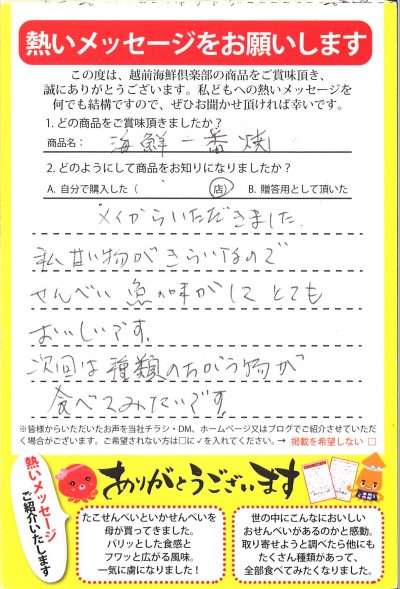 熱いメッセージをお願いします
この度は、越前海鮮倶楽部の商品をご賞味頂き、
誠にありがとうございます。私どもへの熱いメッセージを
何でも結構ですので、ぜひお聞かせ頂ければ幸いです。
1. どの商品をご賞味頂きましたか？
商品名： 海鮮一番焼
2. どのようにして商品をお知りになりましたか？
A. 自分で購入した（ 店） B. 贈答用として頂いた
メイからいただきました.
私甘い物がきらいなので
せんべい 魚の味がして とても
おいしいです.
次回は種類のちがう物が
食べてみたいです.
※皆様からいただいたお声を当社チラシ・DM、ホームページ又はブログでご紹介させていただ
く場合がございます。ご希望されない方は□に✓を入れてください。→ 掲載を希望しない □
熱いメッセージ
ご紹介いたします
ありがとうございます
たこせんべいといかせんべいを
母が買ってきました。
パリッとした食感と
フワッと広がる風味。
一気に虜になりました！
世の中にこんなにおいしい
おせんべいがあるのかと感動。
取り寄せようと調べたら他にも
たくさん種類があって、
全部食べてみたくなりました。